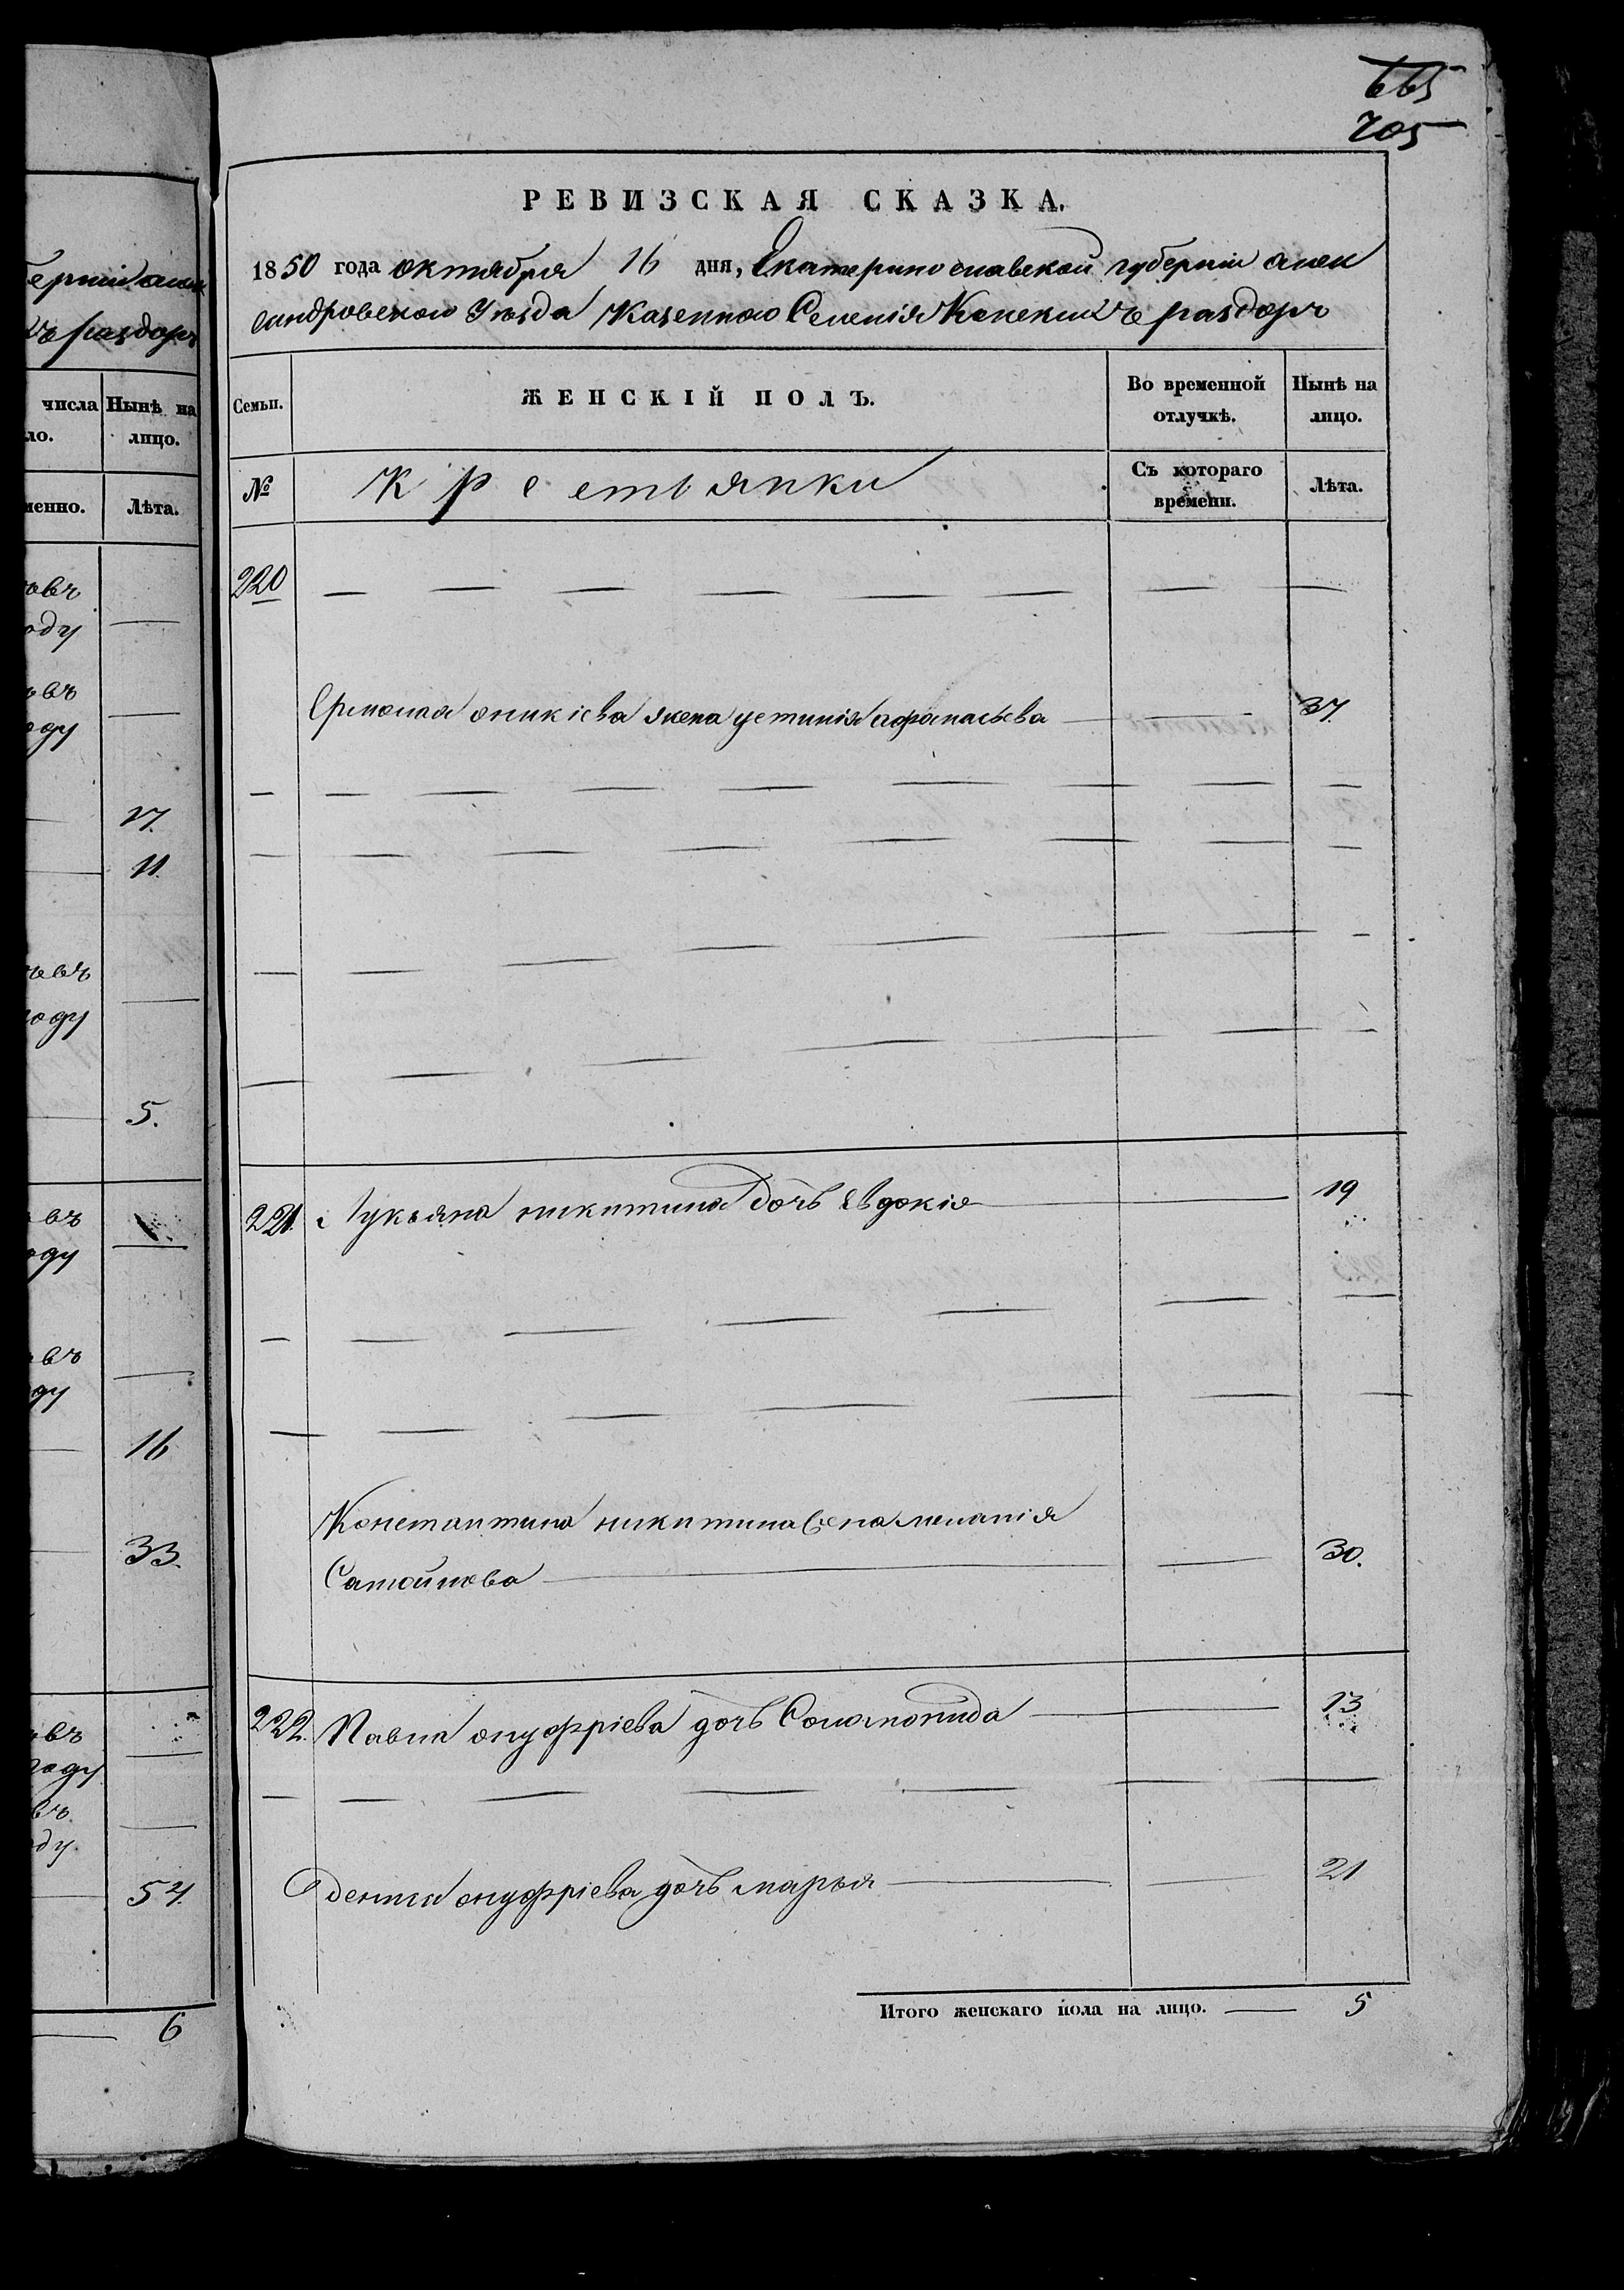 665
705
РЕВИЗСКАЯ СКАЗКА.
1850 года октября 16 дня, Екатеринославской губерніи алек
сандровскои Уезда Казенного Селенія Конскихъ раздоръ
Семьи. ЖЕНСКІЙ ПОЛЪ. Во временной отлучкѣ. Нынѣ на лицо.
№ Крестьянки Съ котораго времени. Лѣта.
220
Ермолая оникіева жена устинія афанасьева 37.
221. Лукьяна никитина дочь Евдокія 19
Константина никитина жена меланія
Самойлова 30.
222. Павла онуфріева дочь Соломонида 13
Дениса онуфріева дочь марья 21
Итого женскаго пола на лицо. 5
числа Нынѣ на
ло. лицо.
менно. Лѣта.
овъ
оду
овъ
оду
17.
11.
оду
5.
овъ
оду
овъ
оду
16
33.
овъ
году
овъ
оду.
54.
6